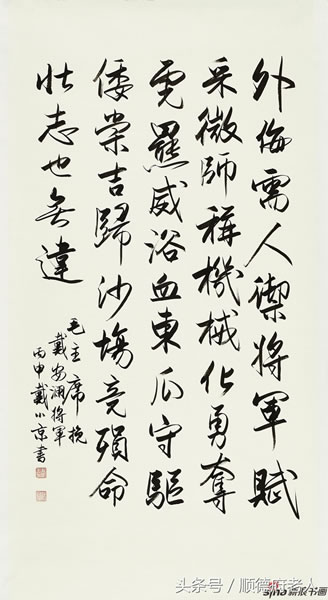 外侮需人禦將軍賦
采微師稱機械化勇奪
虎羆威浴血東瓜守驅
倭棠吉歸沙場竟殞命
壯志也無違
毛主席挽
戴安瀾將軍
丙申戴小京書
头条号 / 顺德府老人
sina新浪书画